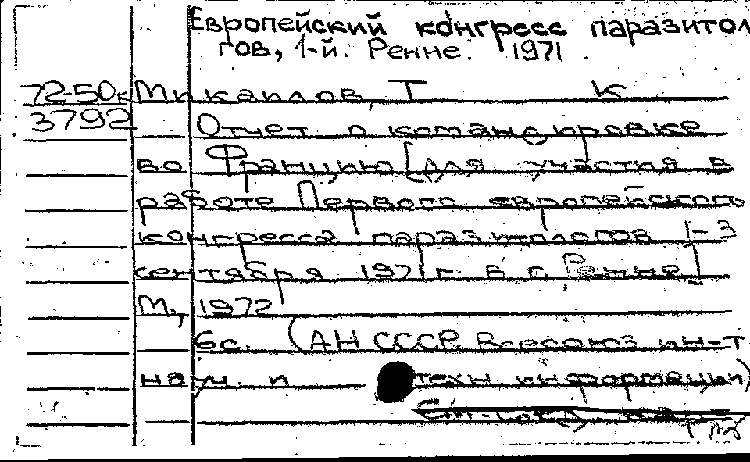 Европейский конгресс паразитол
гов, 1-й. Ренне. 1971
72-50к Микаилов, Т К
3792 Отчет о командировке
во Францию [для участия в
работе Первого европейского
конгресса паразитологов 1-3
сентября 1971 г. в г. Ренне]
М., 1972
6с. (АН СССР. Всесоюз ин-т
науч. и техн информации)